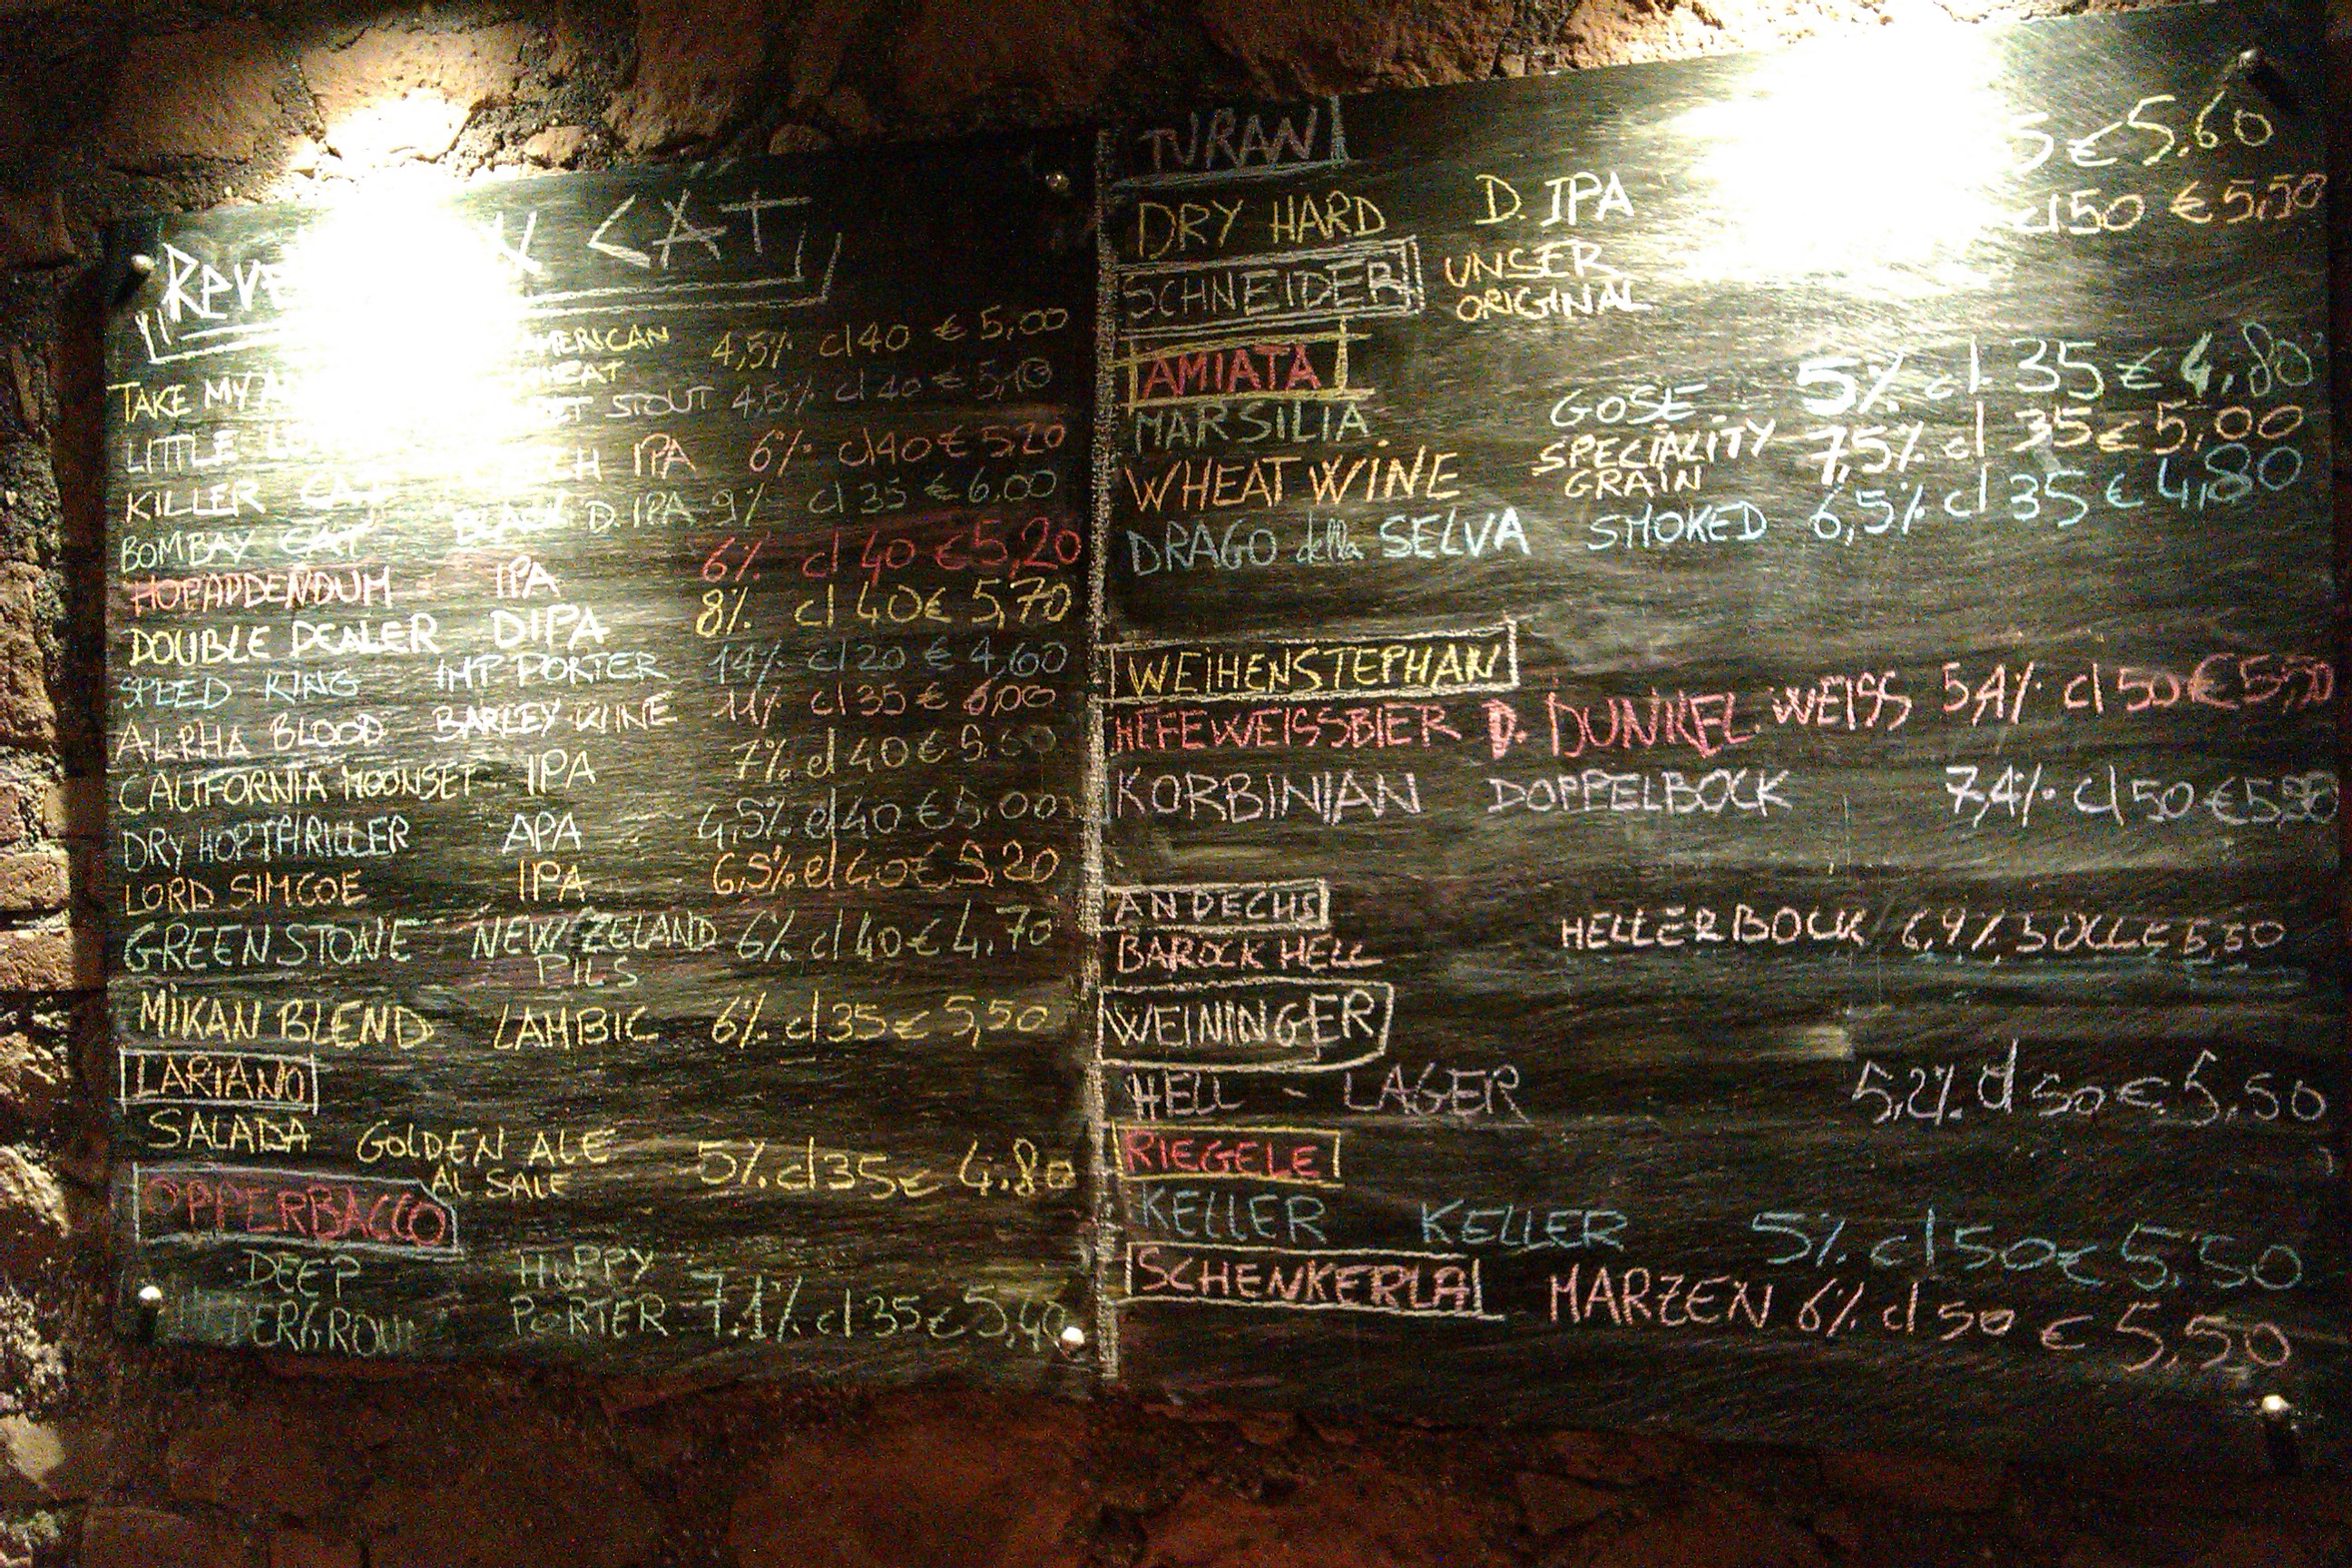 CAT
AMERICAN
TAKE MY 4,5% cl 40 € 5,00
LITTLE STOUT 4,5% cl 40 € 5,10
KILLER CAT IPA 6% cl 40 € 5,20
BOMBAY CAT BLACK D. IPA 9% cl 35 € 6.00
HOPADDENDUM IPA 6% cl 40 € 5,20
DOUBLE DEALER DIPA 8% cl 40 € 5,70
SPEED KING IMP PORTER 14% cl 20 € 4,60
ALPHA BLOOD BARLEY WINE 11% cl 35 € 6,00
CALIFORNIA MOONSET IPA 7% cl 40 €
DRY HOPTHRILLER APA 4,5% cl 40 € 5.00
LORD SIMCOE IPA 6,5% cl 40 € 5,20
GREENSTONE NEW ZELAND 6% cl 40 € 4,70
PILS
MIKAN BLEND LAMBIC 6% cl 35 € 5,50
LARIANO
SALADA GOLDEN ALE 5% cl 35 € 4.80
AL SALE
OPPERBACCO
DEEP HOPPY
PORTER 7.1% cl 35 € 5,40
TURAN
DRY HARD D. IPA € 5,60
SCHNEIDER UNSER cl 50 € 5,50
ORIGINAL
AMIATA
MARSILIA GOSE 5% cl 35 € 4,80
WHEAT WINE SPECIALITY 7,5% cl 35 € 5,00
GRAIN
DRAGO della SELVA SMOKED 6,5% cl 35 € 4,80
WEIHENSTEPHAN
HEFEWEISSBIER D. DUNKEL WEISS 5,4% cl 50 € 5,50
KORBINIAN DOPPELBOCK 7,4% cl 50 €
ANDECHS
BAROCK HELL HELLERBOCK
WEININGER
HELL - LAGER 5,2% cl 50 € 5,50
RIEGELE
KELLER KELLER 5% cl 50 € 5,50
SCHENKERLA MARZEN 6% cl 50 € 5,50